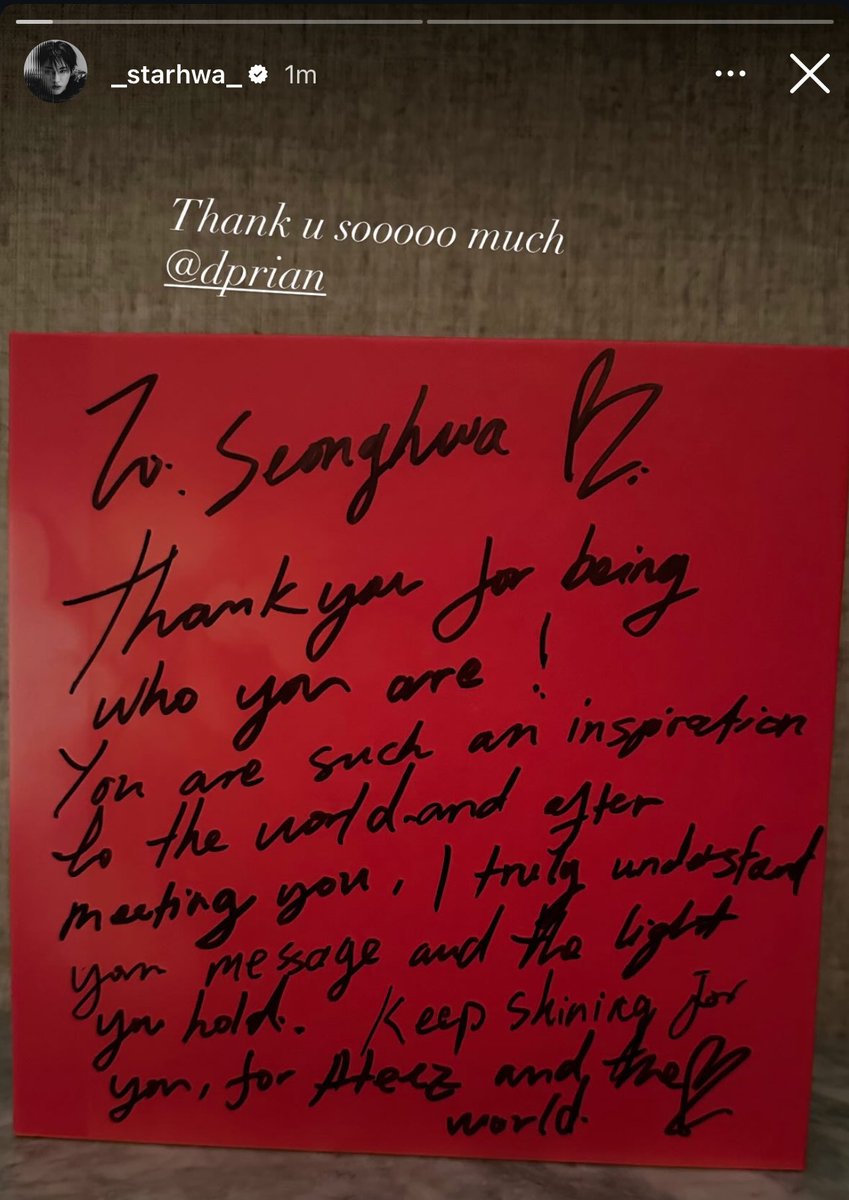 _starhwa_ 1m
Thank u sooooo much
@dprian
To: Seonghwa
Thank you for being
who you are !
You are such an inspiration
to the world and after
meeting you, I truly understand
your message and the light
you hold. Keep shining for
you, for Ateez and the
world.